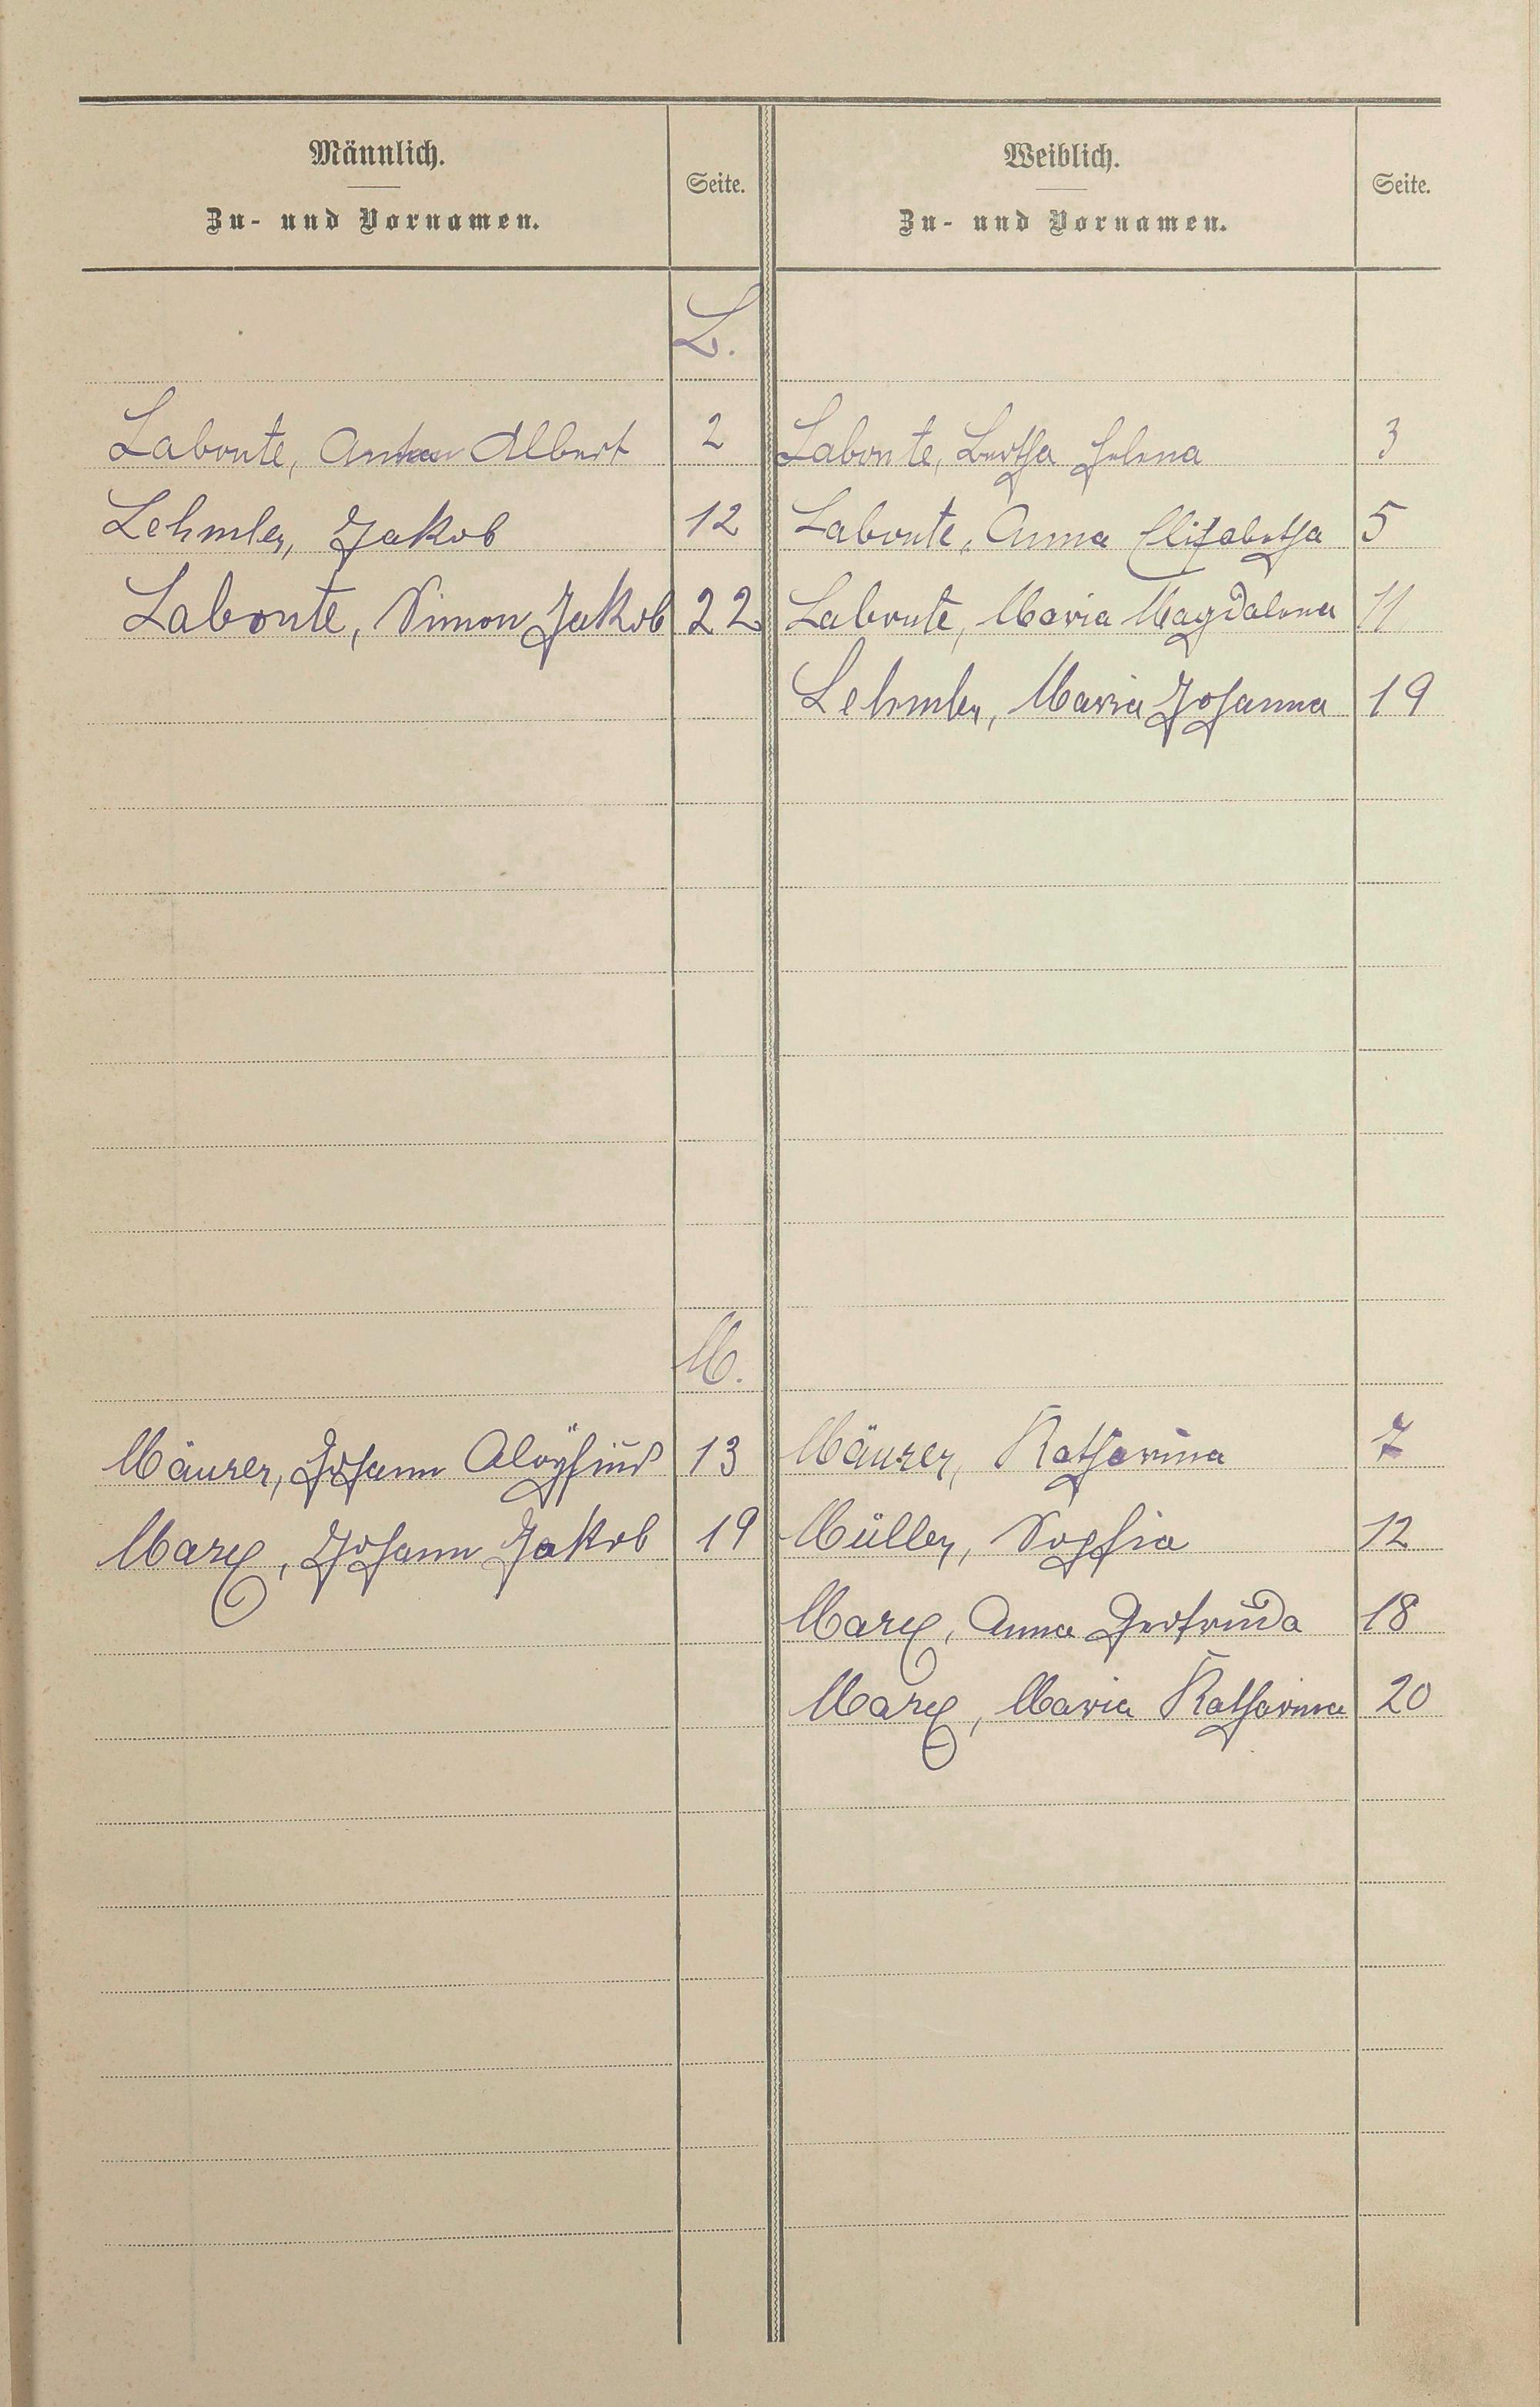 Männlich.
Zu- und Vornamen.
Seite.
Weiblich.
Zu- und Vornamen.
Seite.
L.
Labonte, Anton Albert 2 Labonte, Bertha Helena 3
Lehmler, Jakob 12 Labonte, Anna Elisabetha 5
Labonte, Simon Jakob 22 Labonte, Maria Magdalena 11
Lehmler, Maria Johanna 19
M.
Mäurer, Johann Aloÿsius 13 Mäurer, Katharina 7
Marx, Johann Jakob 19 Müller, Sophia 12
Marx, Anna Gertruda 18
Marx, Maria Katharina 20